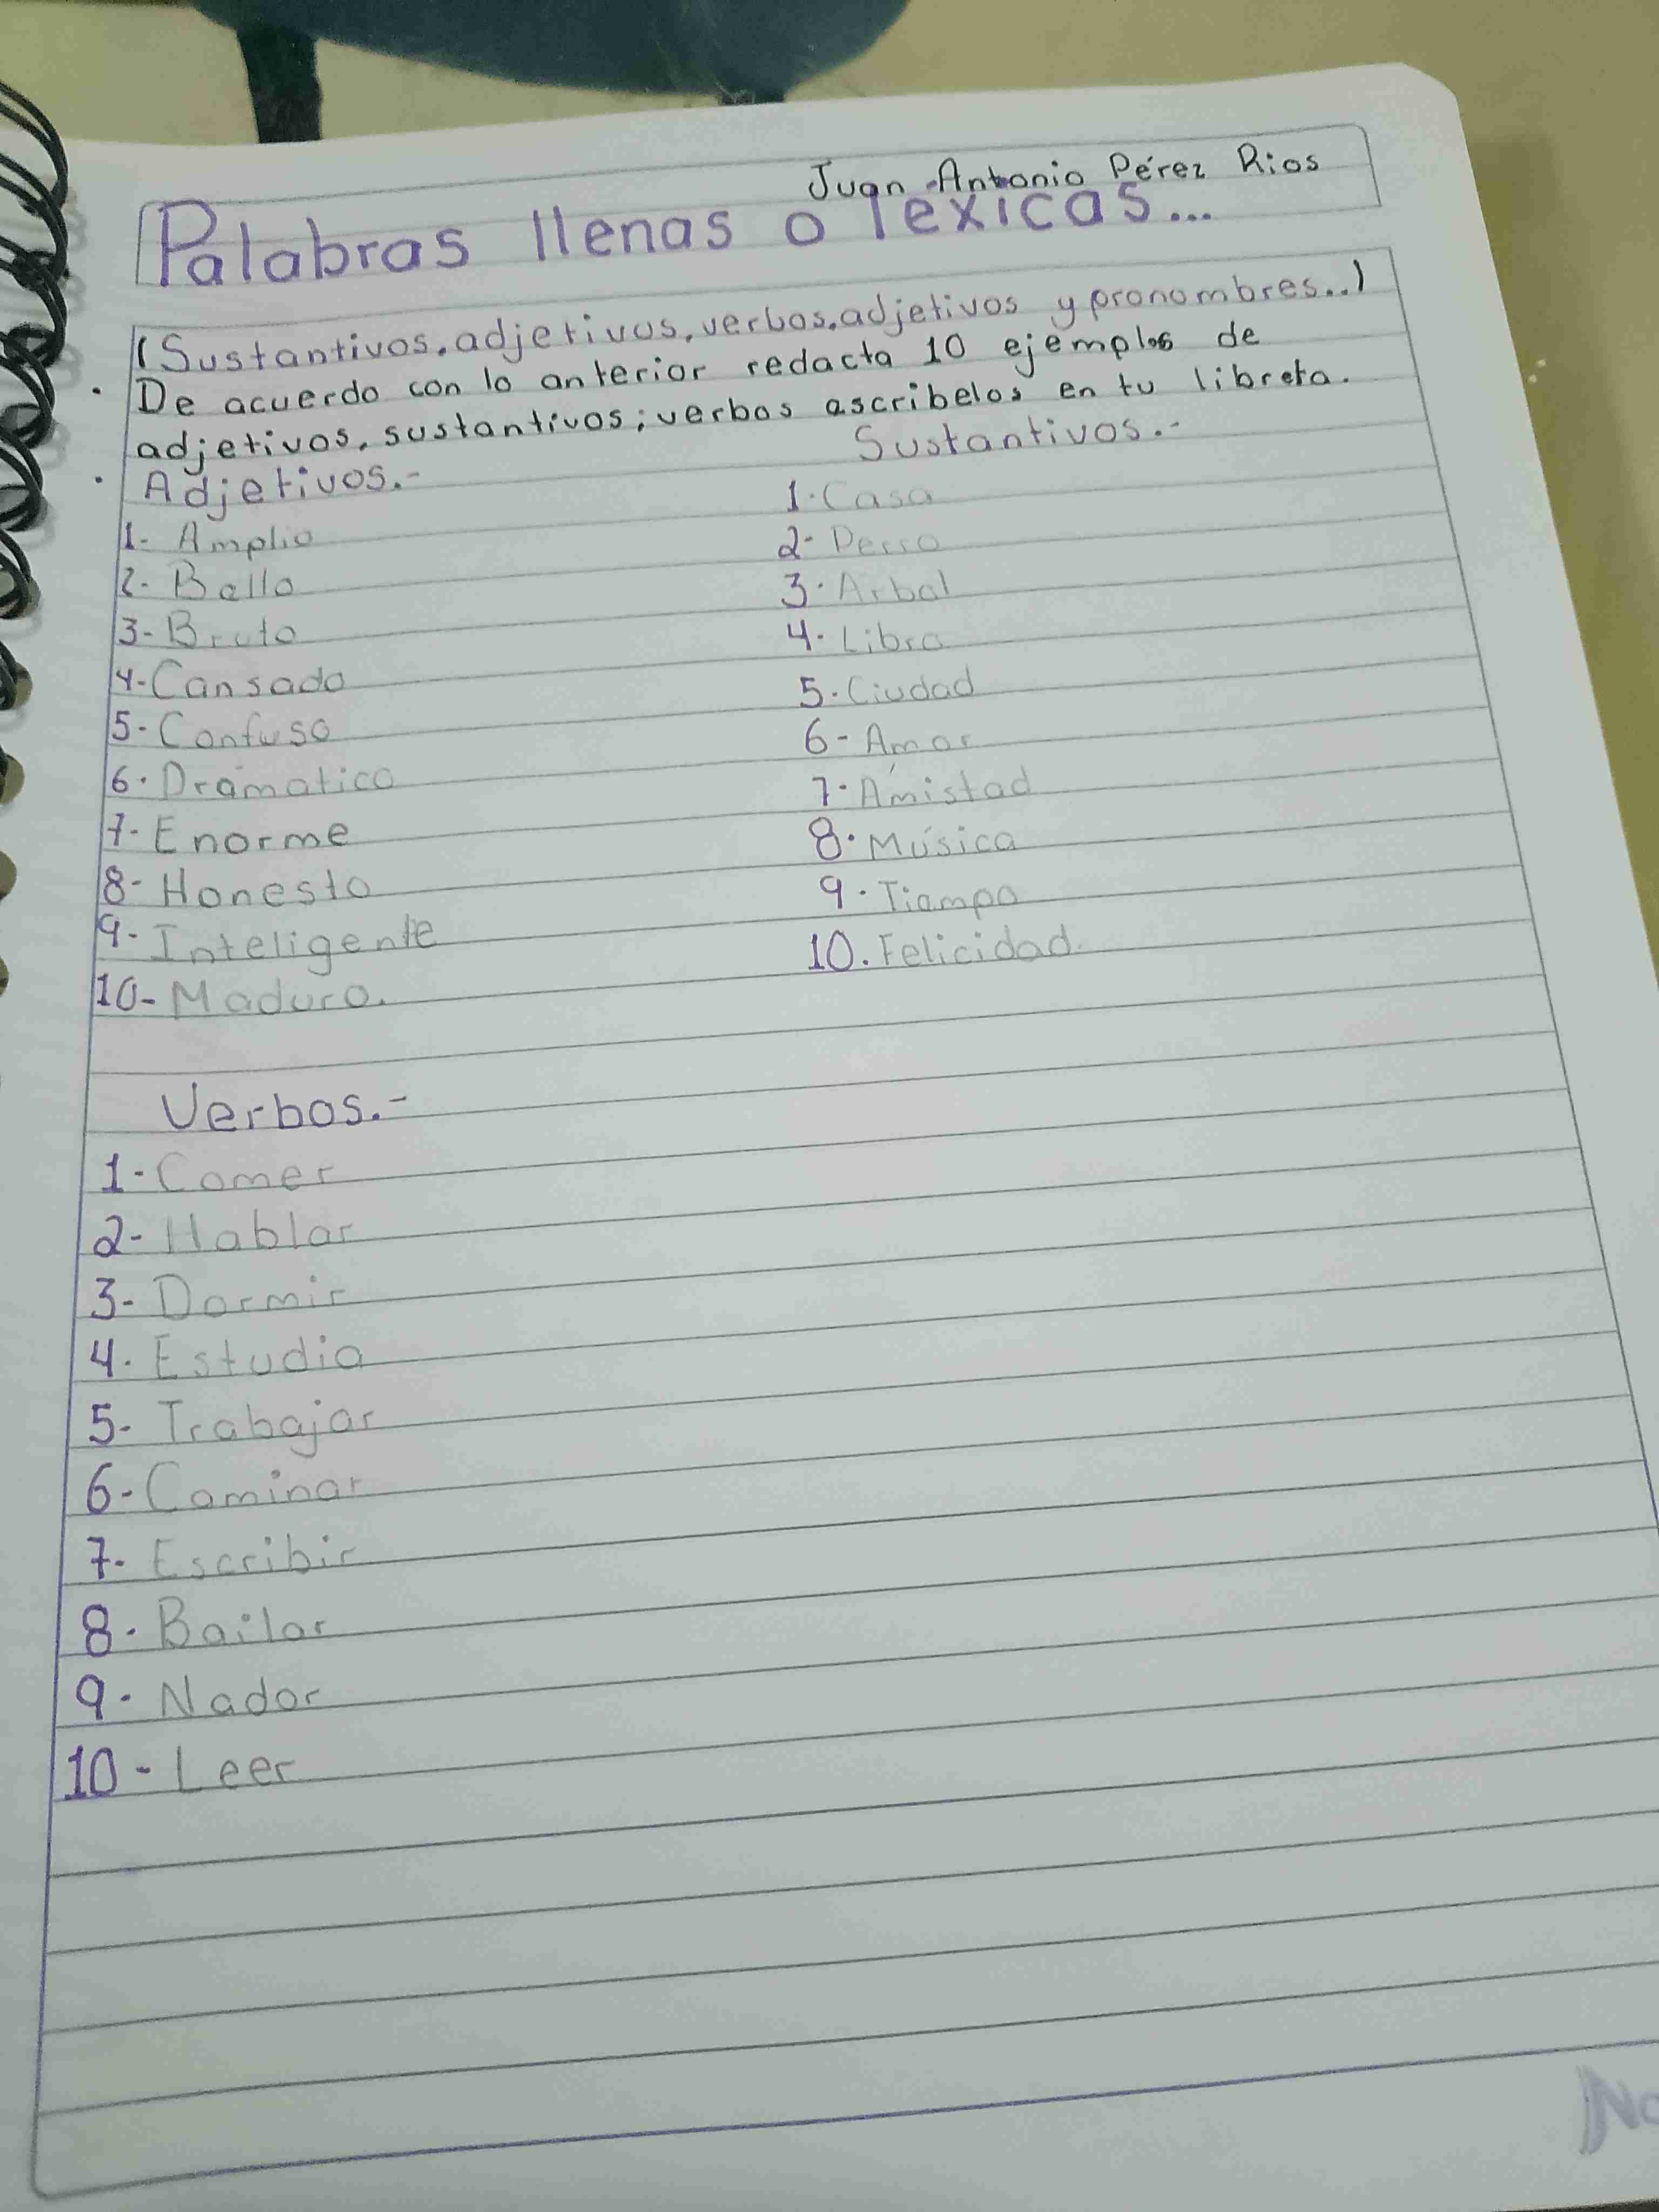 Juan Antonio Pérez Rios
Palabras llenas o léxicas...
(Sustantivos, adjetivos, verbos, adjetivos y pronombres...)
• De acuerdo con lo anterior redacta 10 ejemplos de
adjetivos, sustantivos; verbos ascribelos en tu libreta.
• Adjetivos.-
Sustantivos.-
1- Amplio
2- Bello
3- Bruto
4- Cansado
5- Confuso
6- Dramatico
7- Enorme
8- Honesto
9- Inteligente
10- Maduro.
1. Casa
2- Perro
3. Arbol
4. Libro
5. Ciudad
6- Amor
7. Amistad
8. Música
9. Tiempo
10. Felicidad.
Verbos.-
1- Comer
2- Hablar
3- Dormir
4. Estudia
5- Trabajar
6- Caminar
7- Escribir
8- Bailar
9- Nadar
10- Leer